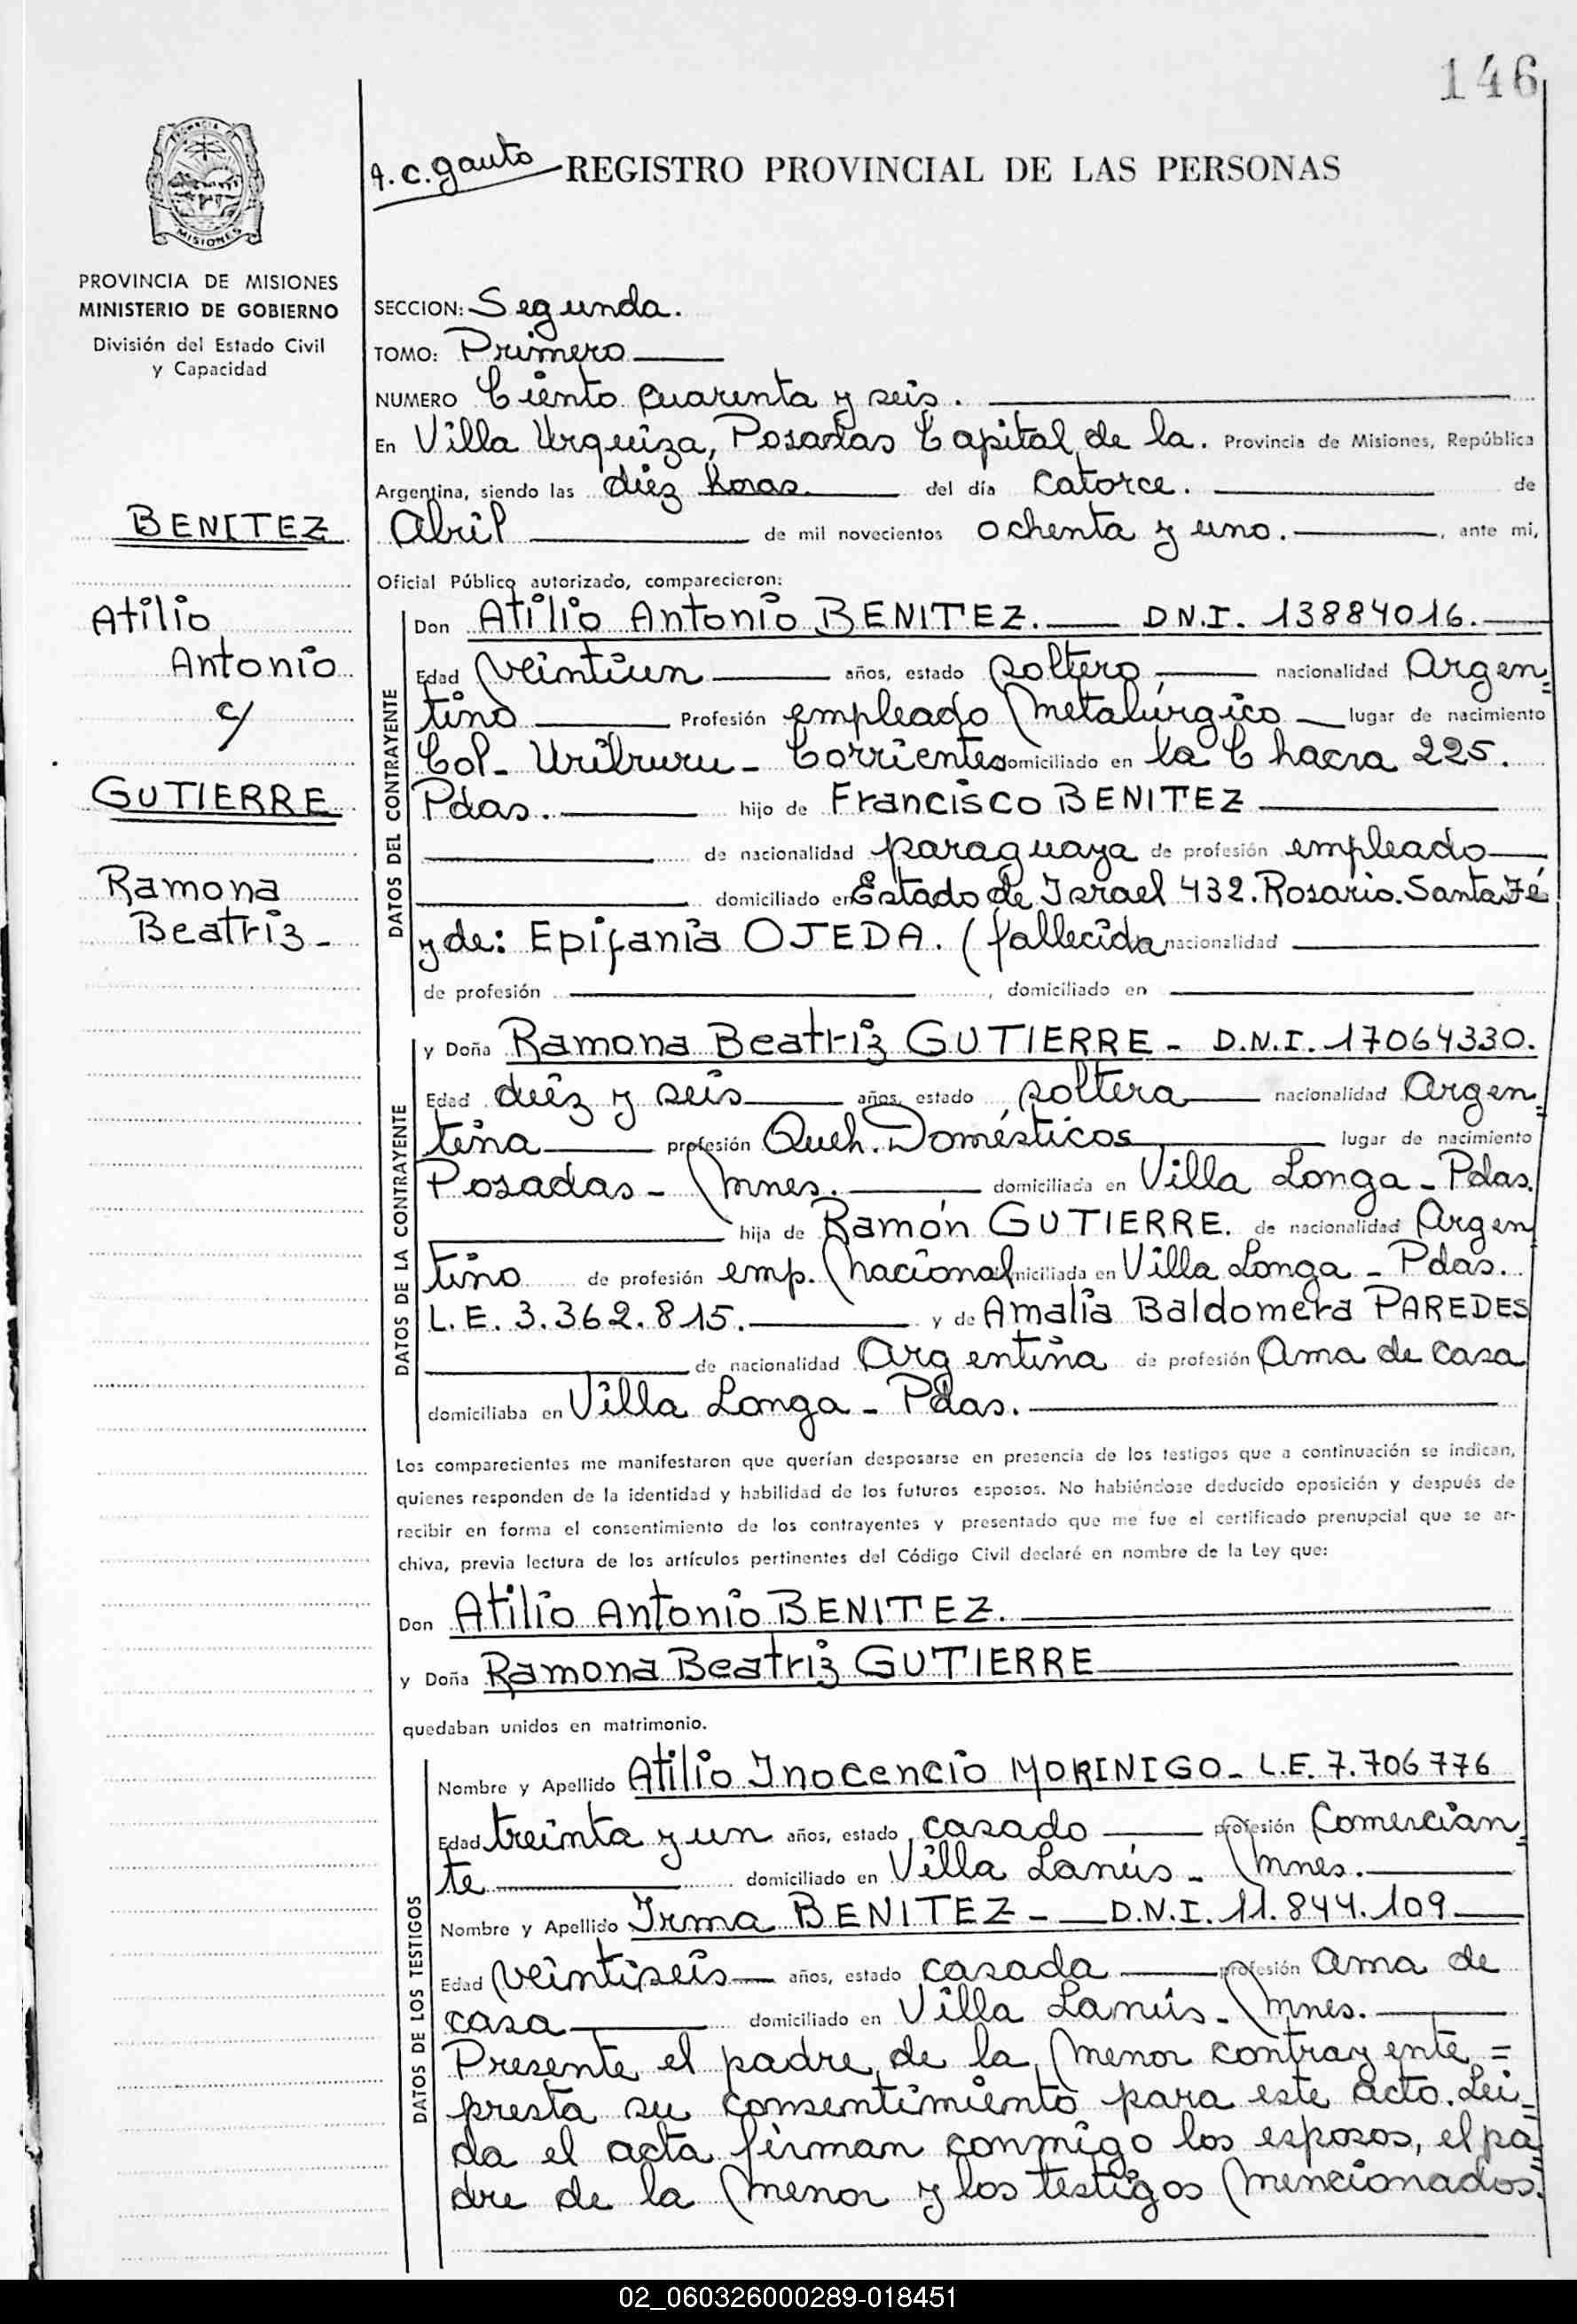 146
A.C. Gauto
REGISTRO PROVINCIAL DE LAS PERSONAS
PROVINCIA
MISIONES
PROVINCIA DE MISIONES
MINISTERIO DE GOBIERNO
División del Estado Civil
y Capacidad
BENITEZ
Atilio
Antonio
c/
GUTIERRE
Ramona
Beatriz-
SECCION: Segunda.
TOMO: Primero
NUMERO Ciento cuarenta y seis.
En Villa Urquiza, Posadas Capital de la. Provincia de Misiones, República
Argentina, siendo las diez horas. del día catorce. de
Abril de mil novecientos ochenta y uno. , ante mi,
Oficial Público autorizado, comparecieron:
DATOS DEL CONTRAYENTE
Don Atilio Antonio BENITEZ. D.N.I. 13884016.
Edad veintiun años, estado soltero, nacionalidad Argen=
tino Profesión empleado metalúrgico lugar de nacimiento
Col- Uriburu- Corrientes domiciliado en la Chacra 225.
Pdas. hijo de Francisco BENITEZ
de nacionalidad paraguaya de profesión empleado
domiciliado en Estado de Israel 432. Rosario. Santa Fé
y de: Epifania OJEDA. (fallecida nacionalidad
de profesión , domiciliado en
DATOS DE LA CONTRAYENTE
y Doña Ramona Beatriz GUTIERRE- D.N.I. 17064330.
Edad diez y seis años, estado soltera nacionalidad Argen=
tina profesión Queh. Domésticos lugar de nacimiento
Posadas- Mnes. domiciliada en Villa Longa- Pdas.
hija de Ramón GUTIERRE. de nacionalidad Argen
tino de profesión emp. nacional domiciliada en Villa Longa- Pdas.
L.E. 3.362.815. y de Amalia Baldomera PAREDES
de nacionalidad Argentina de profesión Ama de casa
domiciliaba en Villa Longa- Pdas.
Los comparecientes me manifestaron que querían desposarse en presencia de los testigos que a continuación se indican,
quienes responden de la identidad y habilidad de los futuros esposos. No habiéndose deducido oposición y después de
recibir en forma el consentimiento de los contrayentes y presentado que me fue el certificado prenupcial que se ar-
chiva, previa lectura de los artículos pertinentes del Código Civil declaré en nombre de la Ley que:
Don Atilio Antonio BENITEZ.
y Doña Ramona Beatriz GUTIERRE
quedaban unidos en matrimonio.
DATOS DE LOS TESTIGOS
Nombre y Apellido Atilio Inocencio MORINIGO- L.E. 7.706776
Edad treinta y un años, estado casado profesión Comercian=
te domiciliado en Villa Lanús- Mnes.
Nombre y Apellido Irma BENITEZ- D.N.I. 11.844.109
Edad veintiseis años, estado casada profesión Ama de
casa domiciliado en Villa Lanús- Mnes.
Presente el padre de la menor contrayente =
presta su consentimiento para este acto. Lei-
da el acta firman conmigo los esposos, el pa-
dre de la menor y los testigos mencionados.
02_060326000289-018451